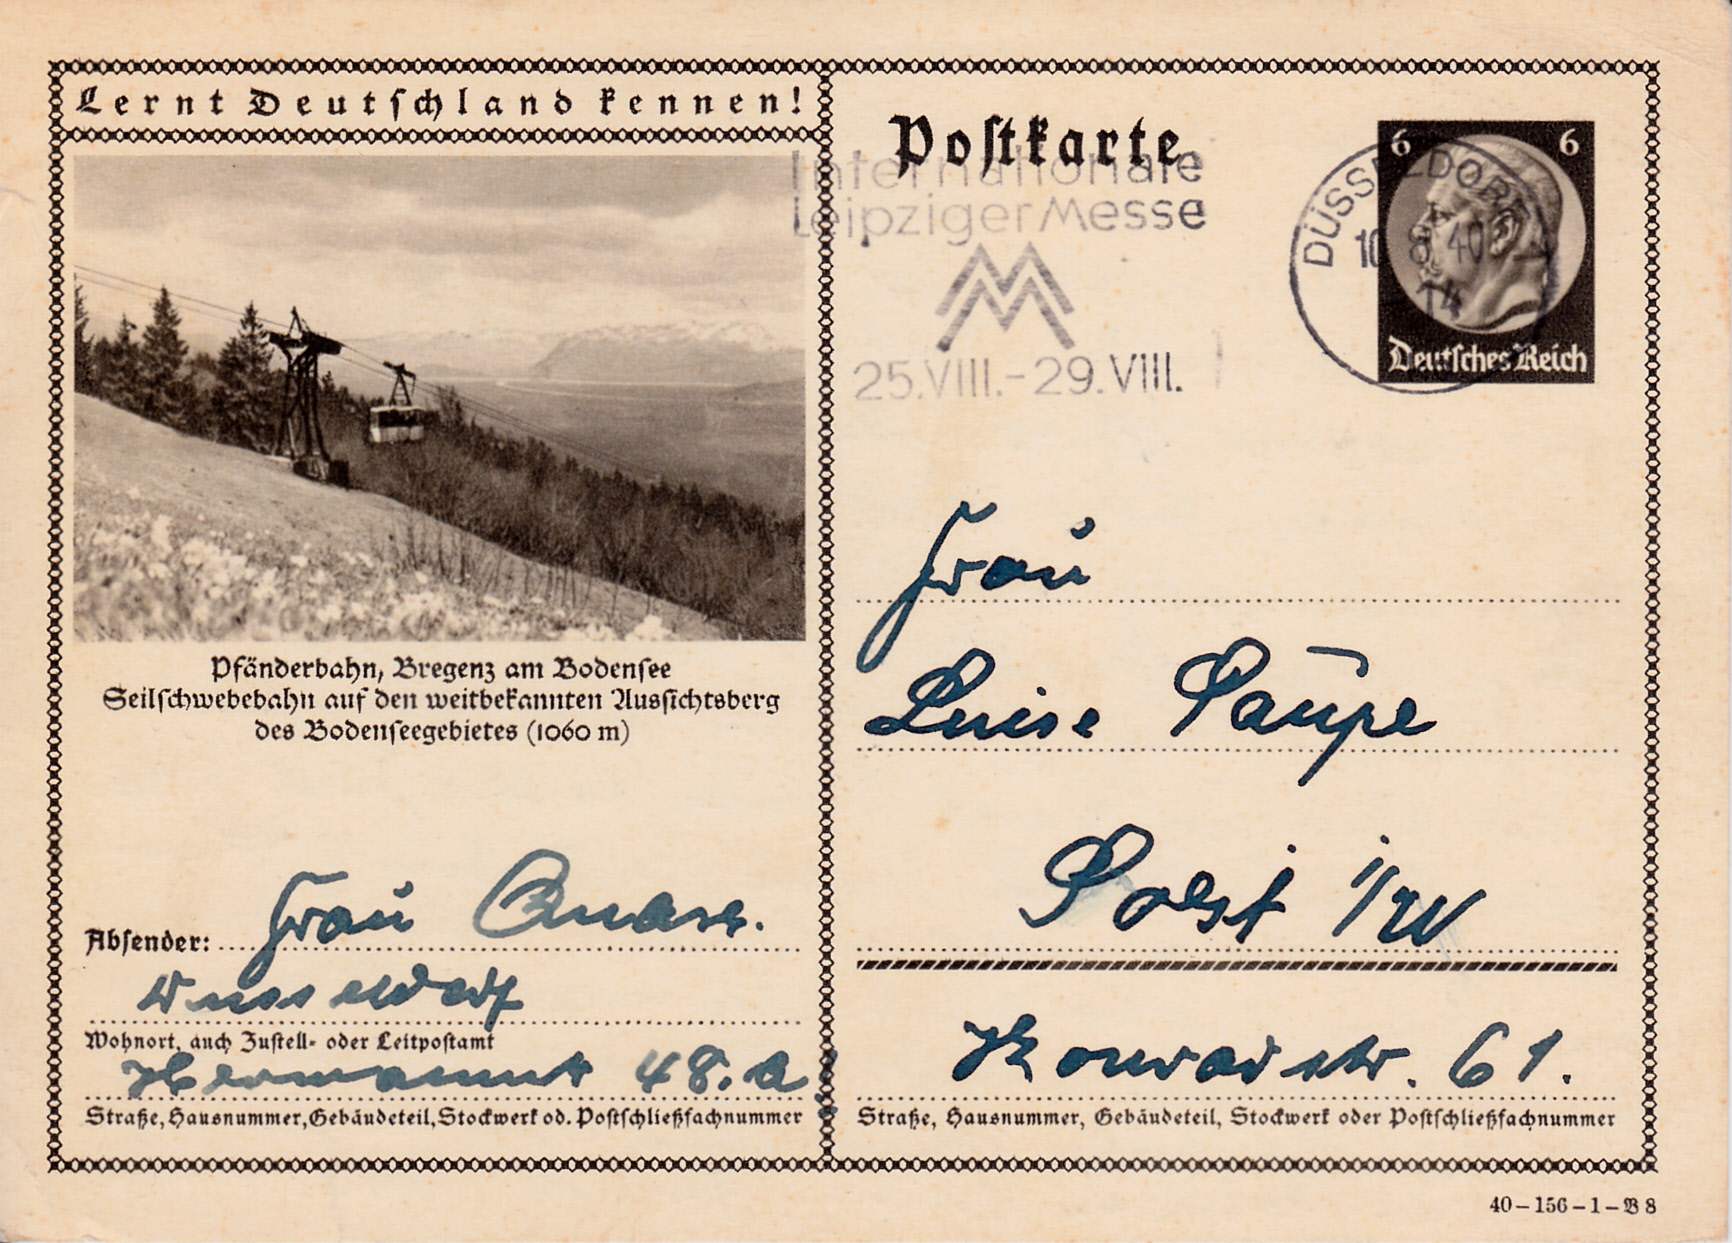 Lernt Deutschland kennen!
Pfänderbahn, Bregenz am Bodensee
Seilschwebebahn auf den weitbekannten Aussichtsberg
des Bodenseegebietes (1060 m)
Absender: Frau
Düsseldorf
Wohnort, auch Zustell- oder Leitpostamt
48. a!
Straße, Hausnummer, Gebäudeteil, Stockwerk od. Postschließfachnummer
Postkarte
Internationale
Leipziger Messe
25.VIII.-29.VIII.
DÜSSELDORF
10.8.40
14
6 6
Deutsches Reich
Frau
Luise
Soest i/W
Konradstr. 61.
Straße, Hausnummer, Gebäudeteil, Stockwerk oder Postschließfachnummer
40-156-1-B 8